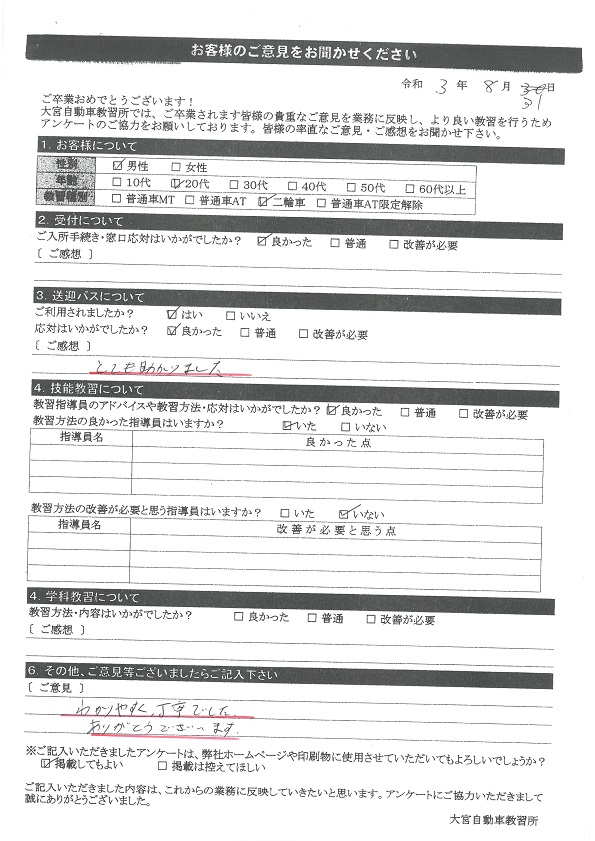 お客様のご意見をお聞かせください
令和 3 年 8 月 30日
31
ご卒業おめでとうございます！
大宮自動車教習所では、ご卒業されます皆様の貴重なご意見を業務に反映し、より良い教習を行うため
アンケートのご協力をお願いしております。皆様の率直なご意見・ご感想をお聞かせ下さい。
1. お客様について
性別 ☑男性 □女性
年齢 □10代 ☑20代 □30代 □40代 □50代 □60代以上
教習種別 □普通車MT □普通車AT ☑二輪車 □普通車AT限定解除
2. 受付について
ご入所手続き・窓口応対はいかがでしたか？ ☑良かった □普通 □改善が必要
〔 ご感想 〕
3. 送迎バスについて
ご利用されましたか？ ☑はい □いいえ
応対はいかがでしたか？ ☑良かった □普通 □改善が必要
〔 ご感想 〕
とても助かりました
4. 技能教習について
教習指導員のアドバイスや教習方法・応対はいかがでしたか？ ☑良かった □普通 □改善が必要
教習方法の良かった指導員はいますか？ ☑いた □いない
指導員名 良かった点
教習方法の改善が必要と思う指導員はいますか？ □いた ☑いない
指導員名 改善が必要と思う点
4. 学科教習について
教習方法・内容はいかがでしたか？ □良かった □普通 □改善が必要
〔 ご感想 〕
6. その他、ご意見等ございましたらご記入下さい
〔 ご意見 〕
わかりやすく、丁寧でした。
ありがとうございます。
※ご記入いただきましたアンケートは、弊社ホームページや印刷物に使用させていただいてもよろしいでしょうか？
☑掲載してもよい □掲載は控えてほしい
ご記入いただきました内容は、これからの業務に反映していきたいと思います。アンケートにご協力いただきまして
誠にありがとうございました。
大宮自動車教習所